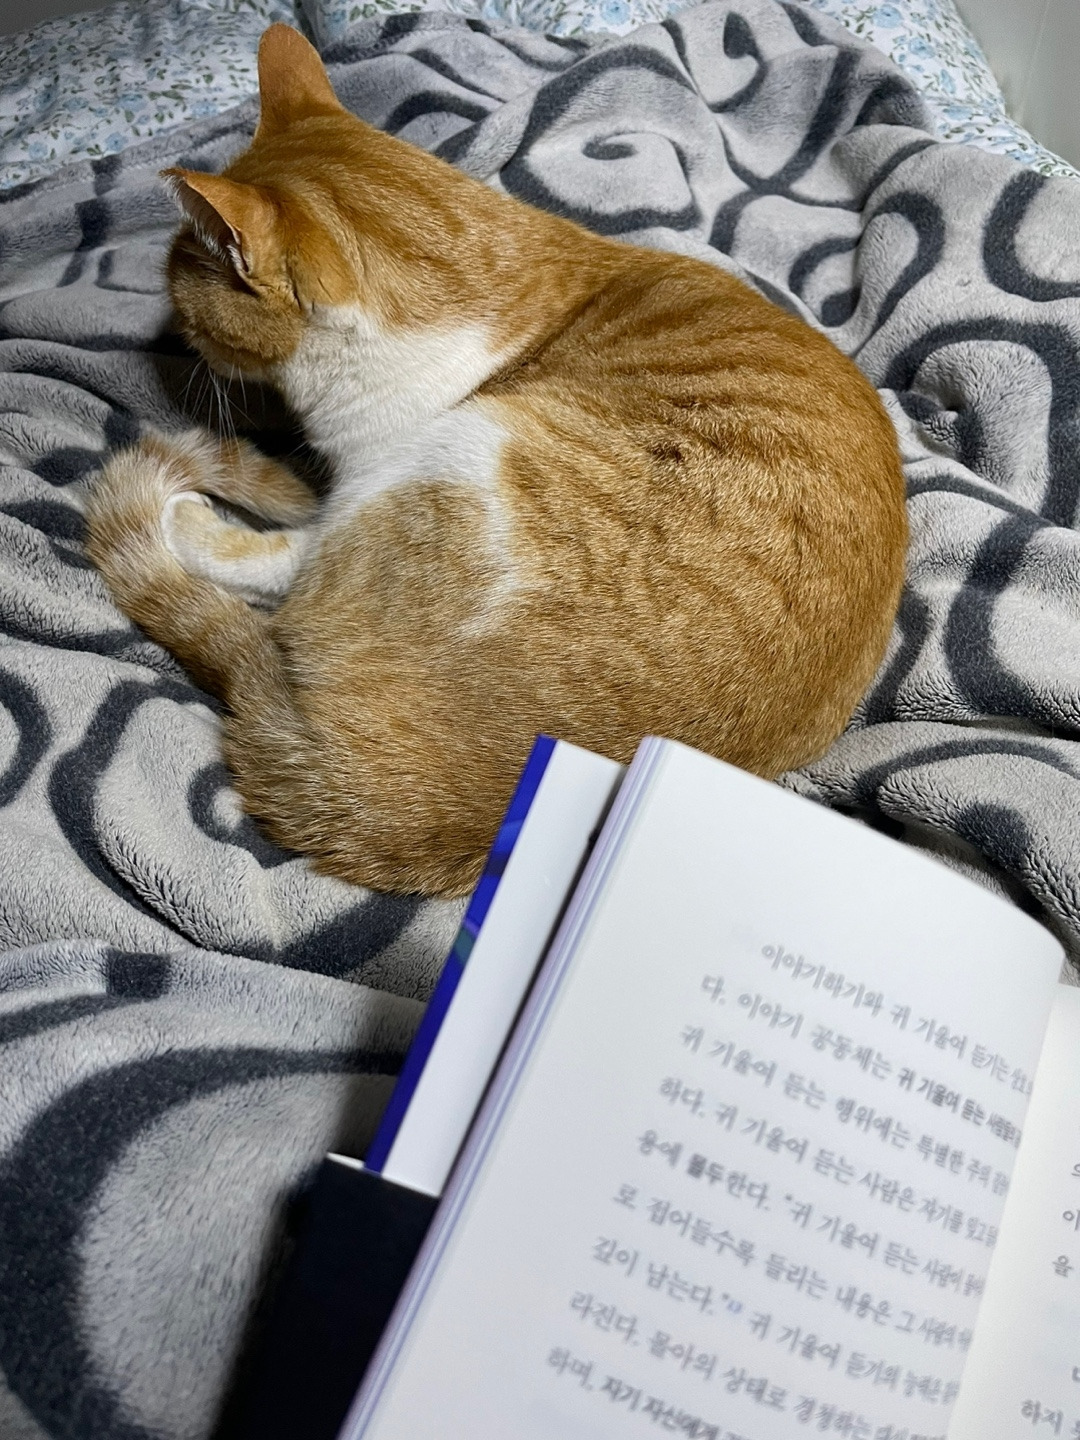 이야기하기와 귀 기울여 듣기는
다. 이야기 공동체는 귀 기울여 듣는
귀 기울여 듣는 행위에는 특별한 주의
하다. 귀 기울여 듣는 사람은 자기를 잊고
용에 몰두한다. "귀 기울여 듣는 사람이
로 접어들수록 들리는 내용은 그 사람의
깊이 남는다." 귀 기울여 듣기의 능력은
라진다. 몰아의 상태로 경청하는
하며, 자기 자신에게
이
을
하지